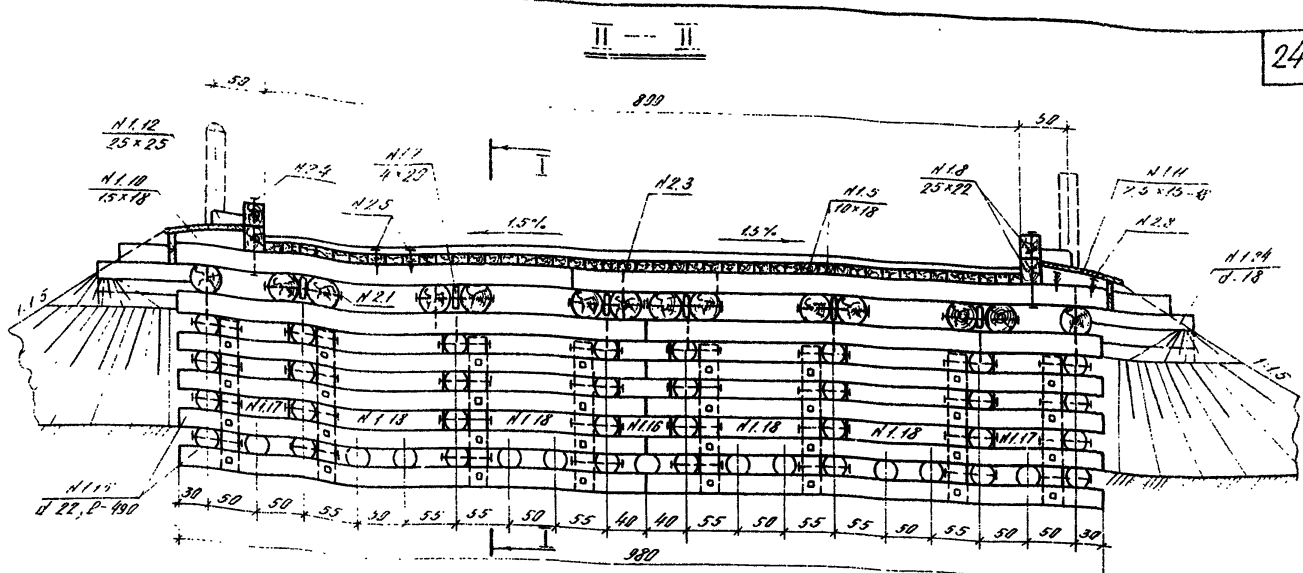 II — II
24
50
800
50
N1.12
25×25
N1.10
15×18
N2.4
N2.5
N1.7
4×20
I
N2.3
N1.5
10×18
N1.8
25×22
N2.3
N1.24
d-18
1.5%
1.5%
N2.1
1:1.5
N1.17
N1.18
N1.18
N1.16
N1.18
N1.18
N1.17
d 22, l-490
30 50 50 55 50 55 55 50 55 40 40 55 50 55 55 50 55 50 50 30
I
980